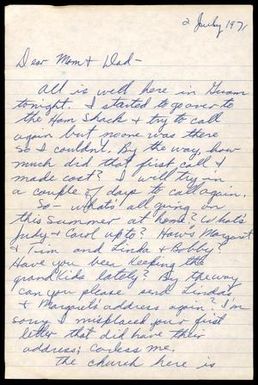 2 July 1971
Dear Mom & Dad-
All is well here in Guam
tonight. I started to go over to
the Ham Shack & try to call
again but no one was there
so I couldn't. By the way, how
much did that first call I
made cost? I will try in
a couple of days to call again.
So - what's all going on
this summer at home? What's
Judy & Carol up to? How's Margaret
& Tim and Linda & Bobby?
Have you been keeping the
grandkids lately? By the way
can you please send Linda's
& Margaret's address again? I'm
sorry I misplaced your first
letter that did have their
address; careless me.
The church here is